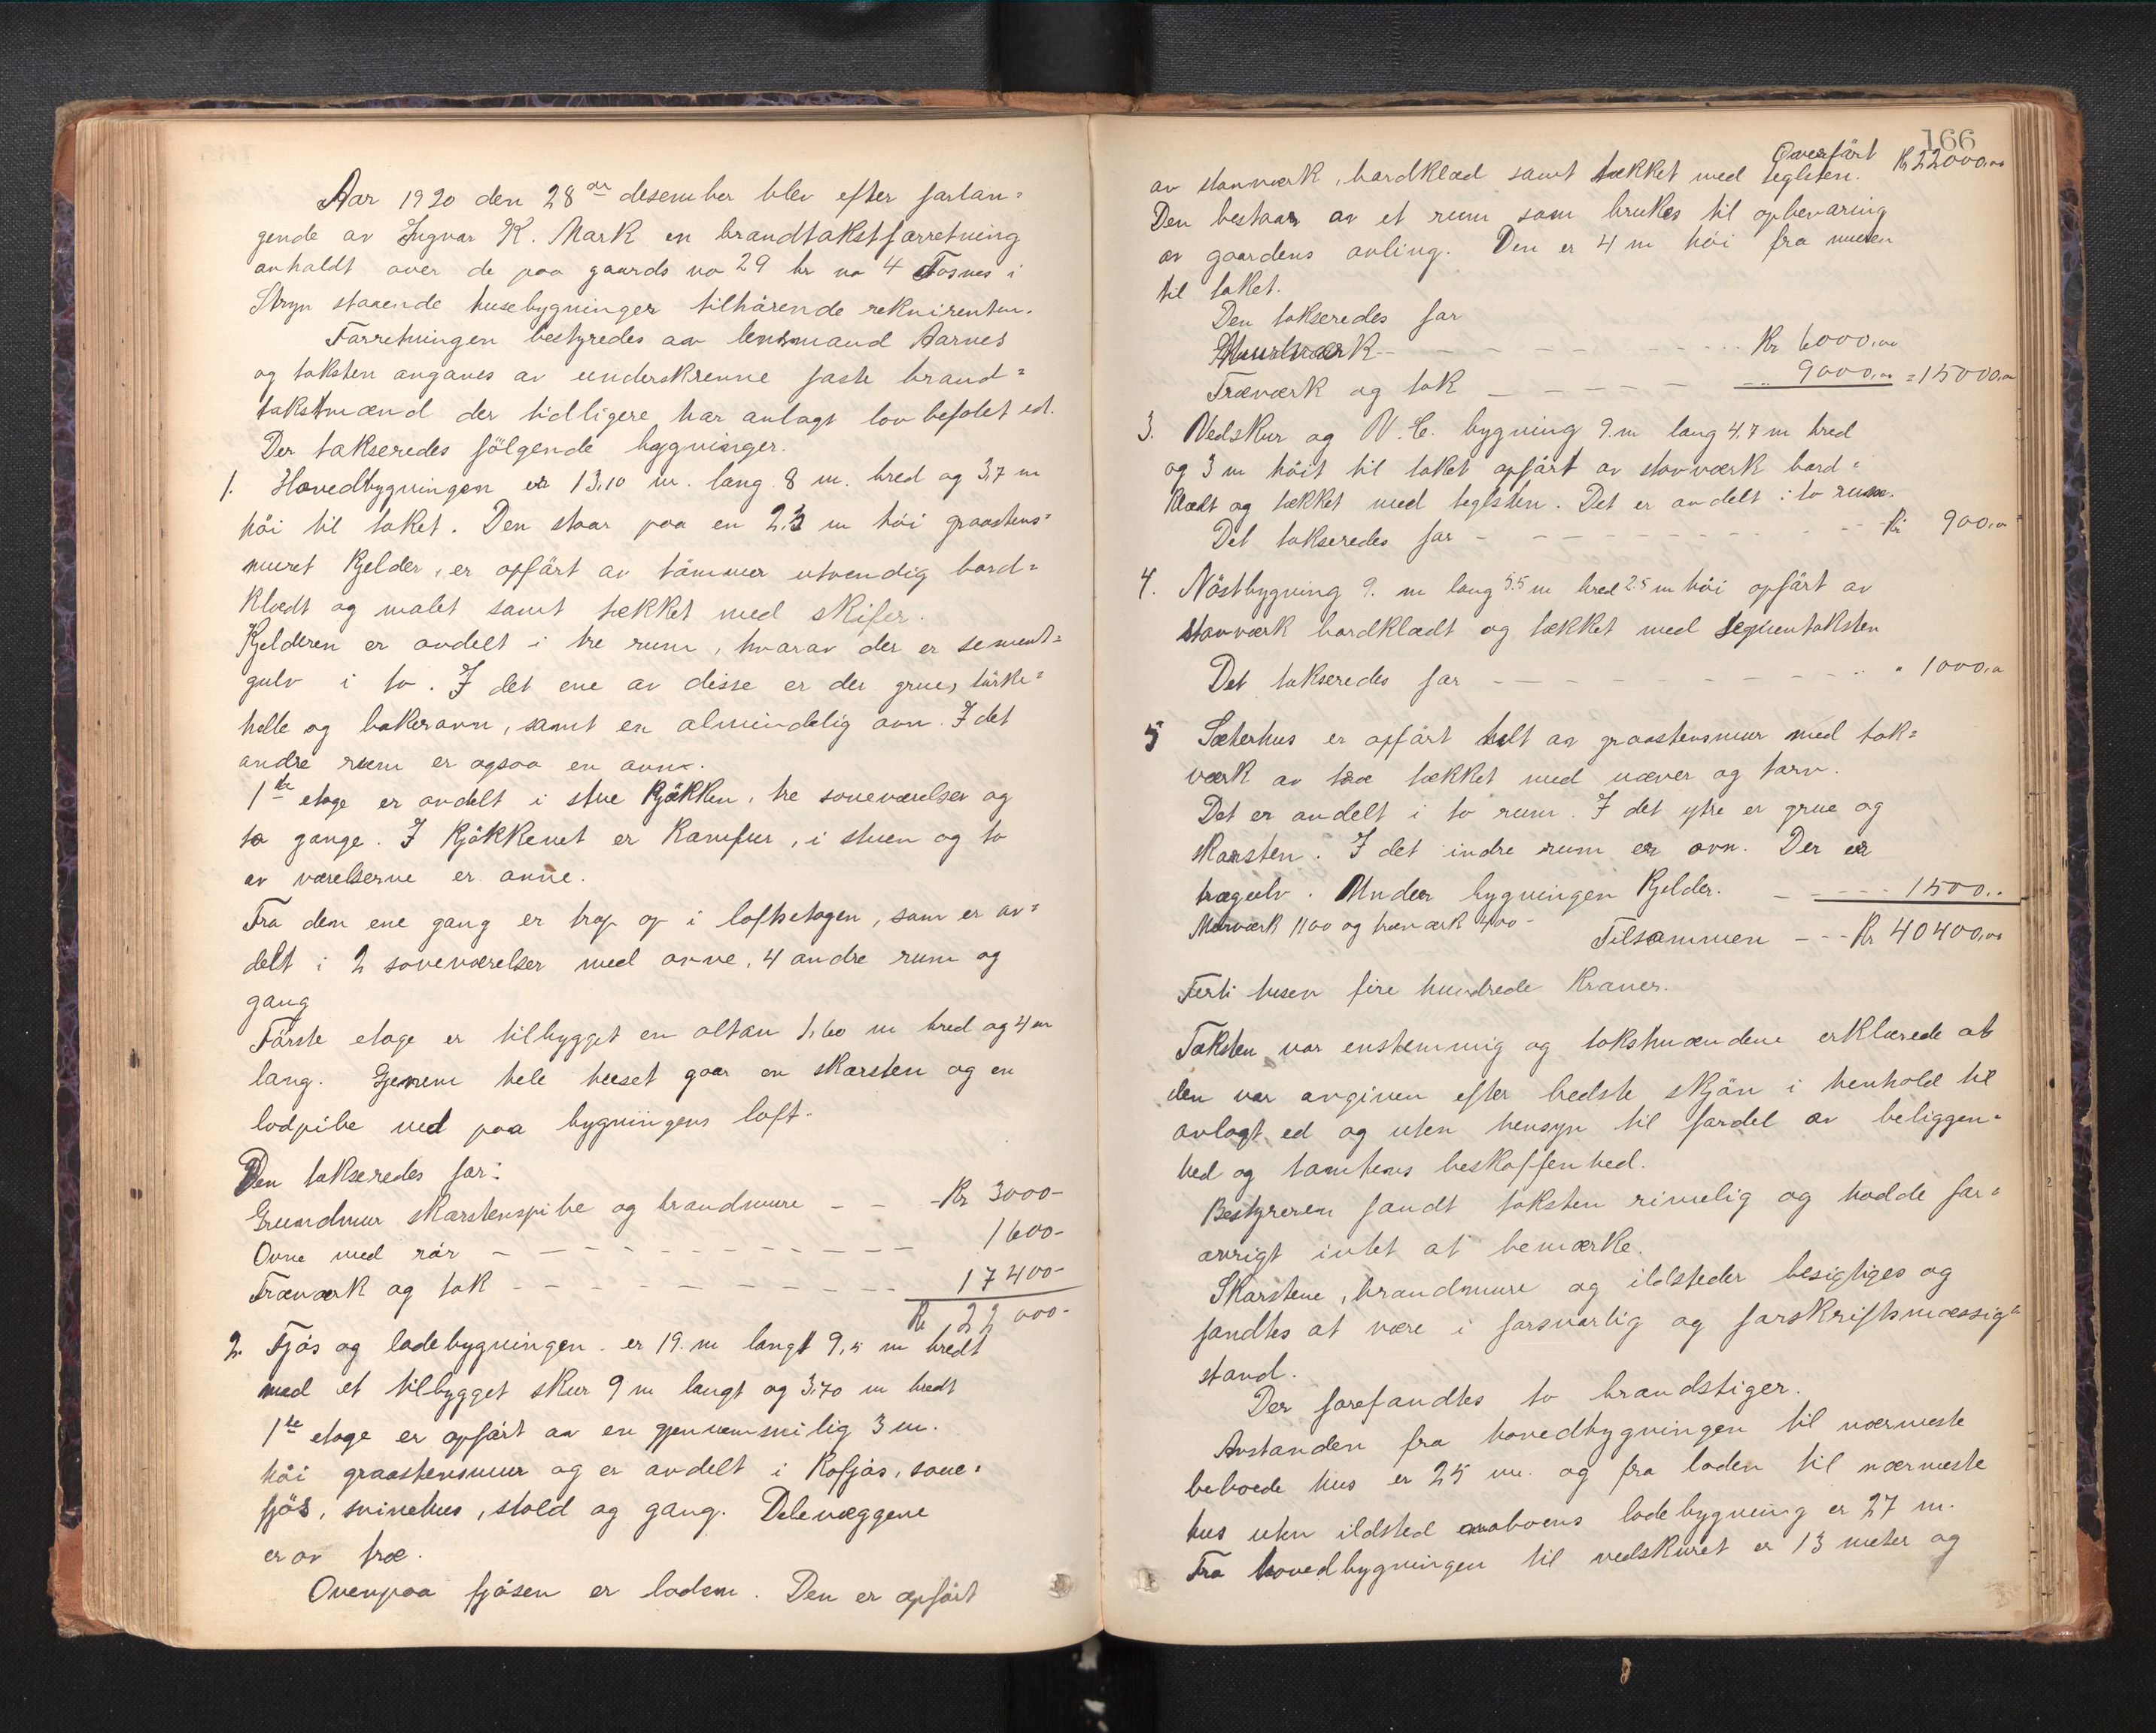 Aar 1920 den 28de desember blev efter forlan=
gende av Ingvar K. Mark en brandtakstforretning
avholdt over de paa gaards no 29 br no 4 Tosnes i
Stryn staaende husebygninger tilhörende rekvirenten.
Forretningen bestyredes av lensmand Aarnes
og taksten avgaves av underskrevne faste brand=
takstmænd der tidligere har avlagt lov befalet ed.
Der takseredes fölgende bygninger.
1. Hovedbygningen er 13,10 m. lang 8 m. bred og 3,7 m
höi til taket. Den staar paa en 2,3 m höi graastens=
muret kjelder, er opfört av tömmer utvendig bord=
klædt og malet samt tækket med skifer.
Kjelderen er avdelt i tre rum, hvorav der er sement=
gulv i to. I det ene av disse er der grue, törke=
helle og bakerovn, samt en almindelig ovn. I det
andre rum er ogsaa en ovn.
1ste etage er avdelt i stue kjökken, tre soveværelser og
to gange. I kjökkenet er komfur, i stuen og to
av værelserne er ovne.
Fra den ene gang er trap op i loftsetagen, som er av=
delt i 2 soveværelser med ovne, 4 andre rum og
gang
Förste etage er tilbygget en altan 1,60 m bred og 4 m
lang. Gjenem hele huset gaar en skorsten og en
lodpibe ned paa bygningens loft.
Den takseredes for:
Grundmur skorstenspibe og brandmure - - - Kr 3000-
Ovne med rör - - - - - - - - - - 1600-
Træværk og tak - - - - - - - - - 17400-
Kr 22000-
2. Fjös og ladebygningen er 19. m langt 9,5 m bredt
med et tilbygget skur 9 m langt og 3,70 m bredt
1ste etage er opfört av en gjennemsnilig 3 m.
höi graastensmur og er avdelt i kofjös, saue=
fjös, svinehus, stald og gang. Delevæggene
er av træ.
Ovenpaa fjösen er laden. Den er opfört
166
Overfört Kr 22000,00
av stavværk, bordklæd samt tækket med teglsten.
Den bestaar av et rum som brukes til opbevaring
av gaardens avling. Den er 4 m höi fra muren
til taket.
Den takseredes for
Murværk - - - - - - - - Kr 6000,00
Træværk og tak - - - - - 9000,00 = 15000,00
3. Vedskur og V. C. bygning 9. m lang 4,7 m bred
og 3 m höit til taket opfört av stavværk bord=
klædt og tækket med teglsten. Det er avdelt i to rum.
Det takseredes for - - - - - - - - - Kr 900,00
4. Nöstbygning 9. m lang 5.5 m bred 2.5 m höi opfört av
stavværk bordklædt og tækket med sementaksten
Det takseredes for - - - - - - - - - - " 1000,00
5 Sæterhus er opfört helt av graastensmur med tak=
værk av træ tækket med næver og torv.
Det er avdelt i to rum. I det ytre er grue og
skorsten. I det indre rum er ovn. Der er
trægulv. Under bygningen kjelder. - - - - 1500,00
Murværk 1100 og træværk 400-
Tilsammen - - - Kr 40400,00
Förti tusen fire hundrede kroner.
Taksten var enstemmig og takstmændene erklærede at
den var avgiven efter bedste skjön i henhold til
avlagt ed og uten hensyn til fordel av beliggen=
hed og tomtens beskaffenhed.
Bestyreren fandt taksten rimelig og hadde for=
övrigt intet at bemærke.
Skorstene, brandmure og ildsteder besigtiges og
fandtes at være i forsvarlig og forskriftsmæssig
stand.
Der forefandtes to brandstiger.
Avstanden fra hovedbygningen til nærmeste
beboede hus er 25 m. og fra laden til nærmeste
hus uten ildsted naboens ladebygning er 27 m.
Fra hovedbygningen til vedskuret er 13 meter og